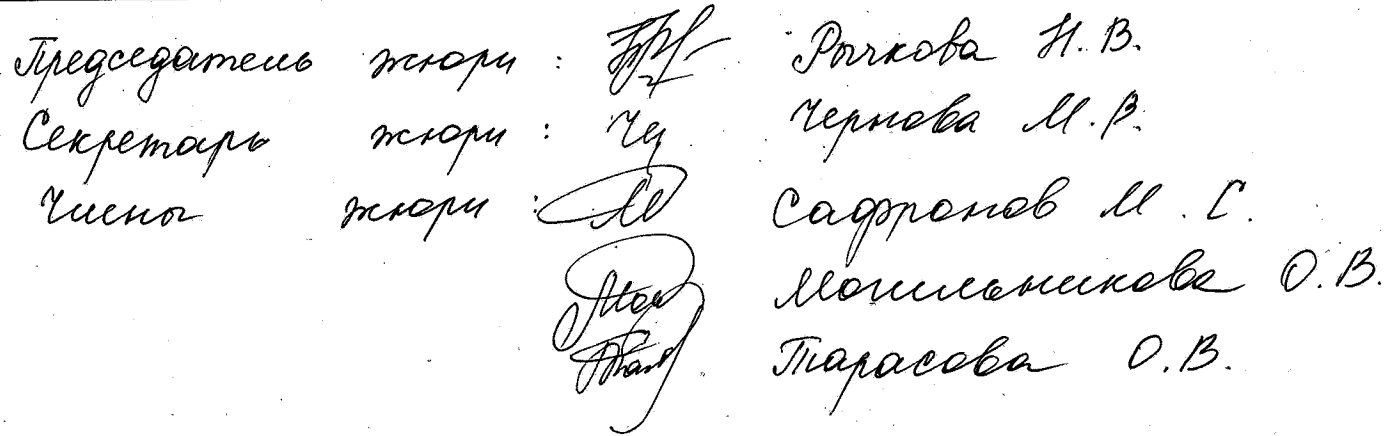 Председатель жюри : Рычкова Н. В.
Секретарь жюри : Чернова М. В.
Члены жюри : Сафронов М. С.
Могильникова О. В.
Тарасова О. В.